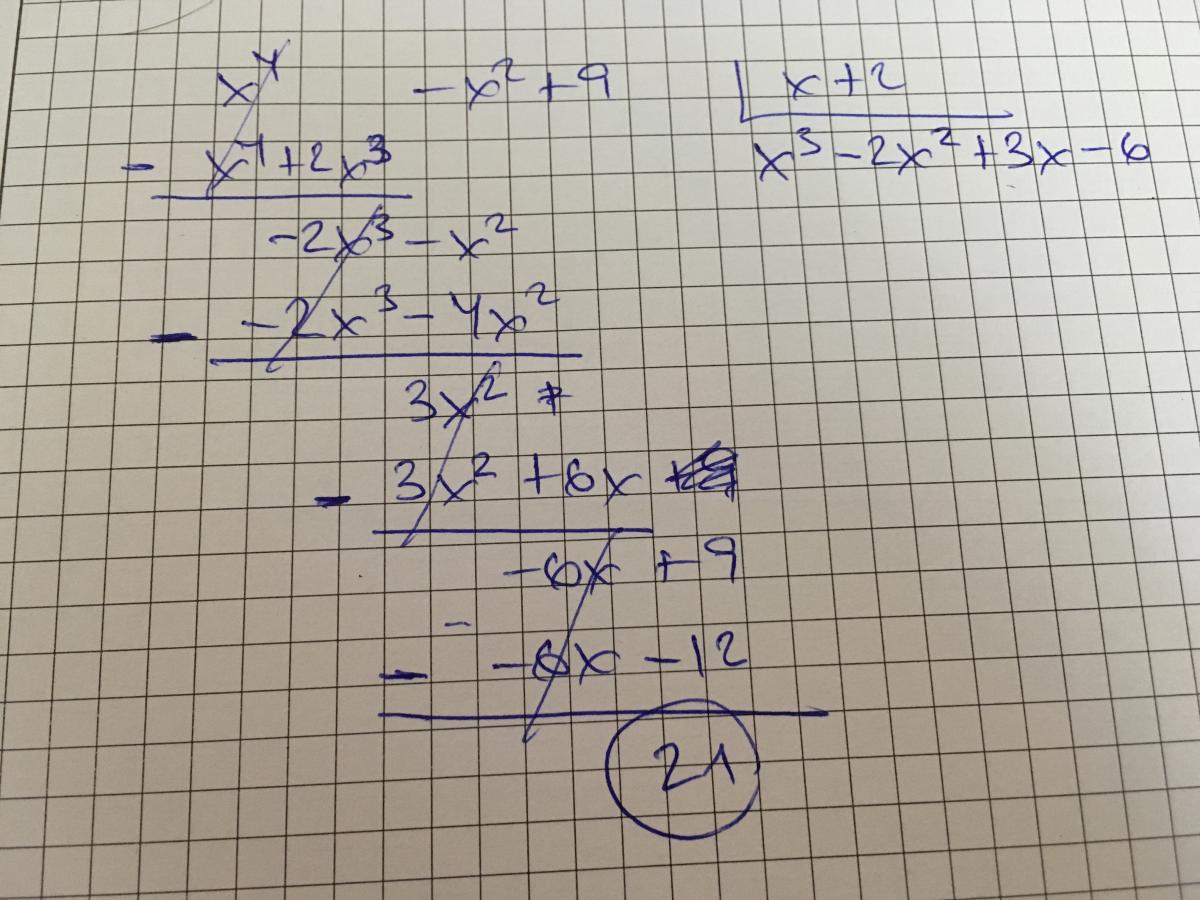 x⁴ - x² + 9 | x + 2
- x⁴ + 2x³ x³ - 2x² + 3x - 6
-2x³ - x²
- -2x³ - 4x²
3x² +
- 3x² + 6x
-6x + 9
-
- -6x - 12
21